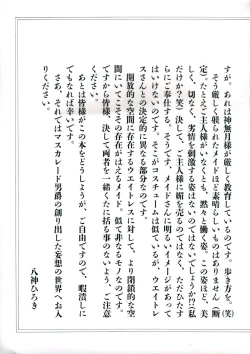 すが、あれは神無月様が厳しく教育しているのです。歩き方を。(笑)
そう厳しく躾られたメイドほど素晴らしいものはありません(断
定)。たとえご主人様がいなくとも、黙々と働く姿、この姿ほど、美
しく、切なく、劣情を刺激する姿はないのではないでしょうか!?(私
だけか?笑)決して、ご主人様に媚を売るのではなく、ただひたす
らにご奉仕する。そうです、メイドさんには暗いイメージがあって
はいけないのです。そこがコスチュームは似ているが、ウエイトレ
スさんとの決定的に異なる部分なのです。
開放的な空間に存在するウエイトレスに対して、より閉鎖的な空
間にいてこそその存在がはえるメイド。似て非なるモノなのです。
ですから皆様、決して両者を一緒くたに括る事のないよう、ご注意
ください。
あとは皆様がこの本をどうしようが、ご自由ですので、暇潰しに
でもなれば幸いです。
さあ、それではマスカレード男爵の創り出した妄想の世界へお入
りください。
八神ひろき